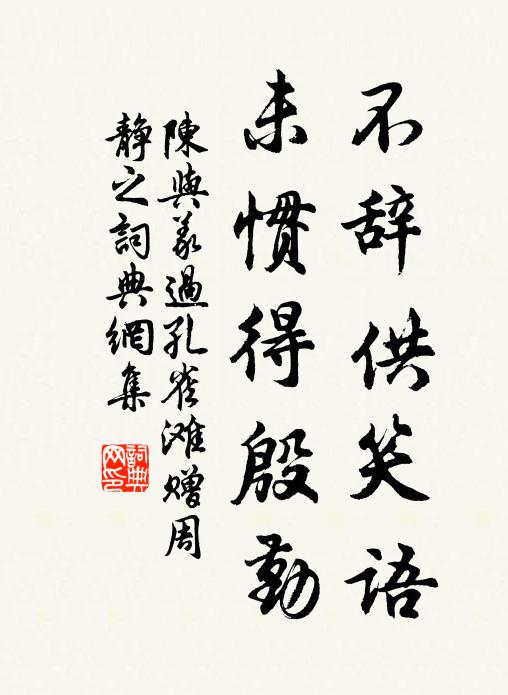 不辞供笑语
未惯得殷勤
陳與義過孔雀滩赠周
静之詞典網集
詞典网印